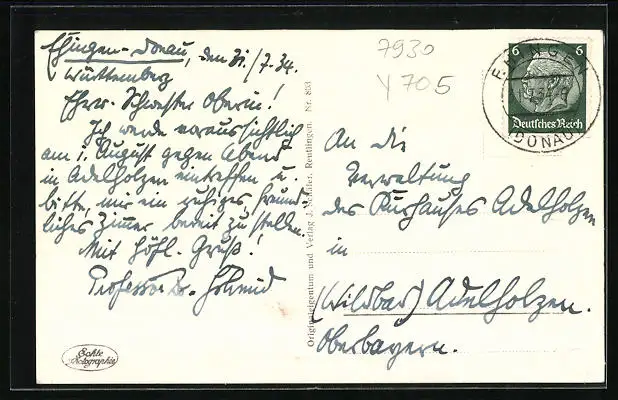 Ehingen-Donau, den 31./7.34.
Württemberg
Ehrw. Schwester Oberin!
Ich werde voraussichtlich
am 1. August gegen Abend
in Adelholzen eintreffen u.
bitte, mir ein ruhiges freund-
liches Zimmer bereit zu stellen.
Mit höfl. Gruß!
Professor Dr. Schmid
Echte
Photographie
Originaleigentum und Verlag J. Schäler, Reutlingen. Nr. 853
7930
Y 705
6 6
Deutsches Reich
EHINGEN
(DONAU)
An die
Verwaltung
des Kurhauses Adelholzen
in
(Wildbad) Adelholzen.
Oberbayern.